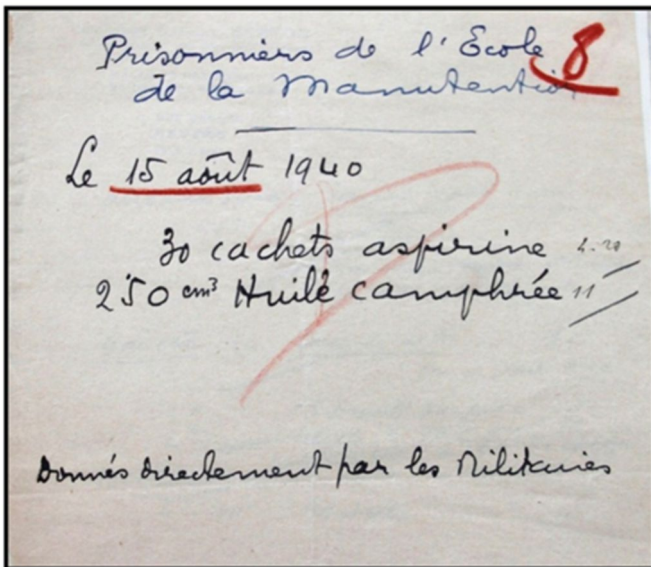 Prisonniers de l'École 8
de la Manutention
Le 15 août 1940
30 cachets aspirine
250 cm³ Huile camphrée 11
Donnés directement par les Militaires